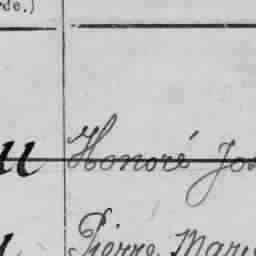 rde.)
u Honoré Jos
Pierre Marie